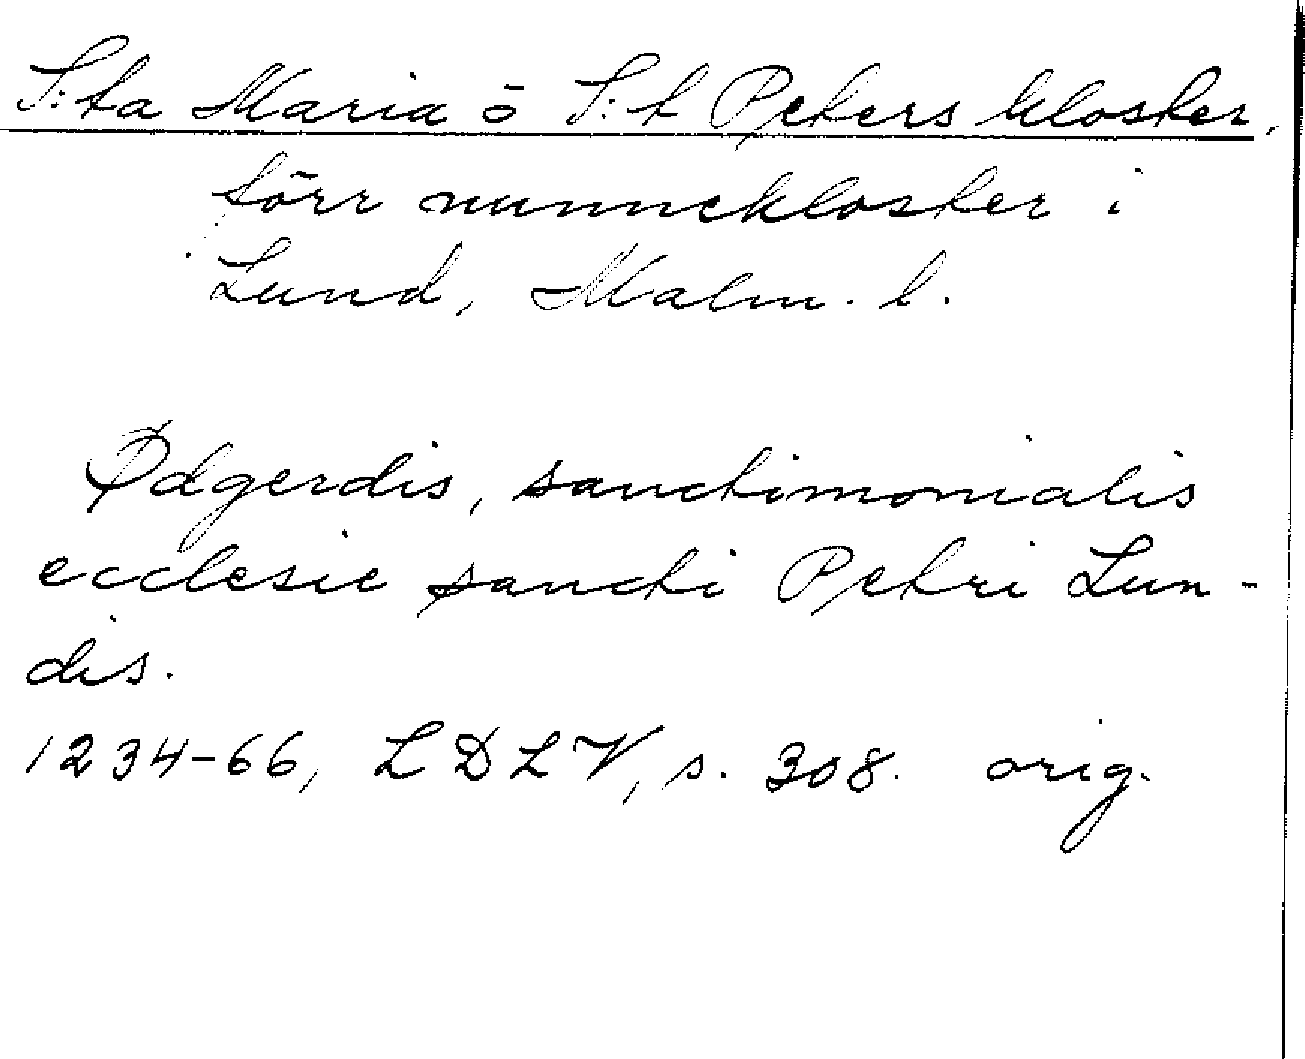 S:ta Maria o S:t Peters kloster,
förr nunnekloster i
Lund, Malm. l.
Ødgerdis, sanctimonialis
ecclesie sancti Petri Lun-
dis.
1234-66, LDLV, s. 308. orig.